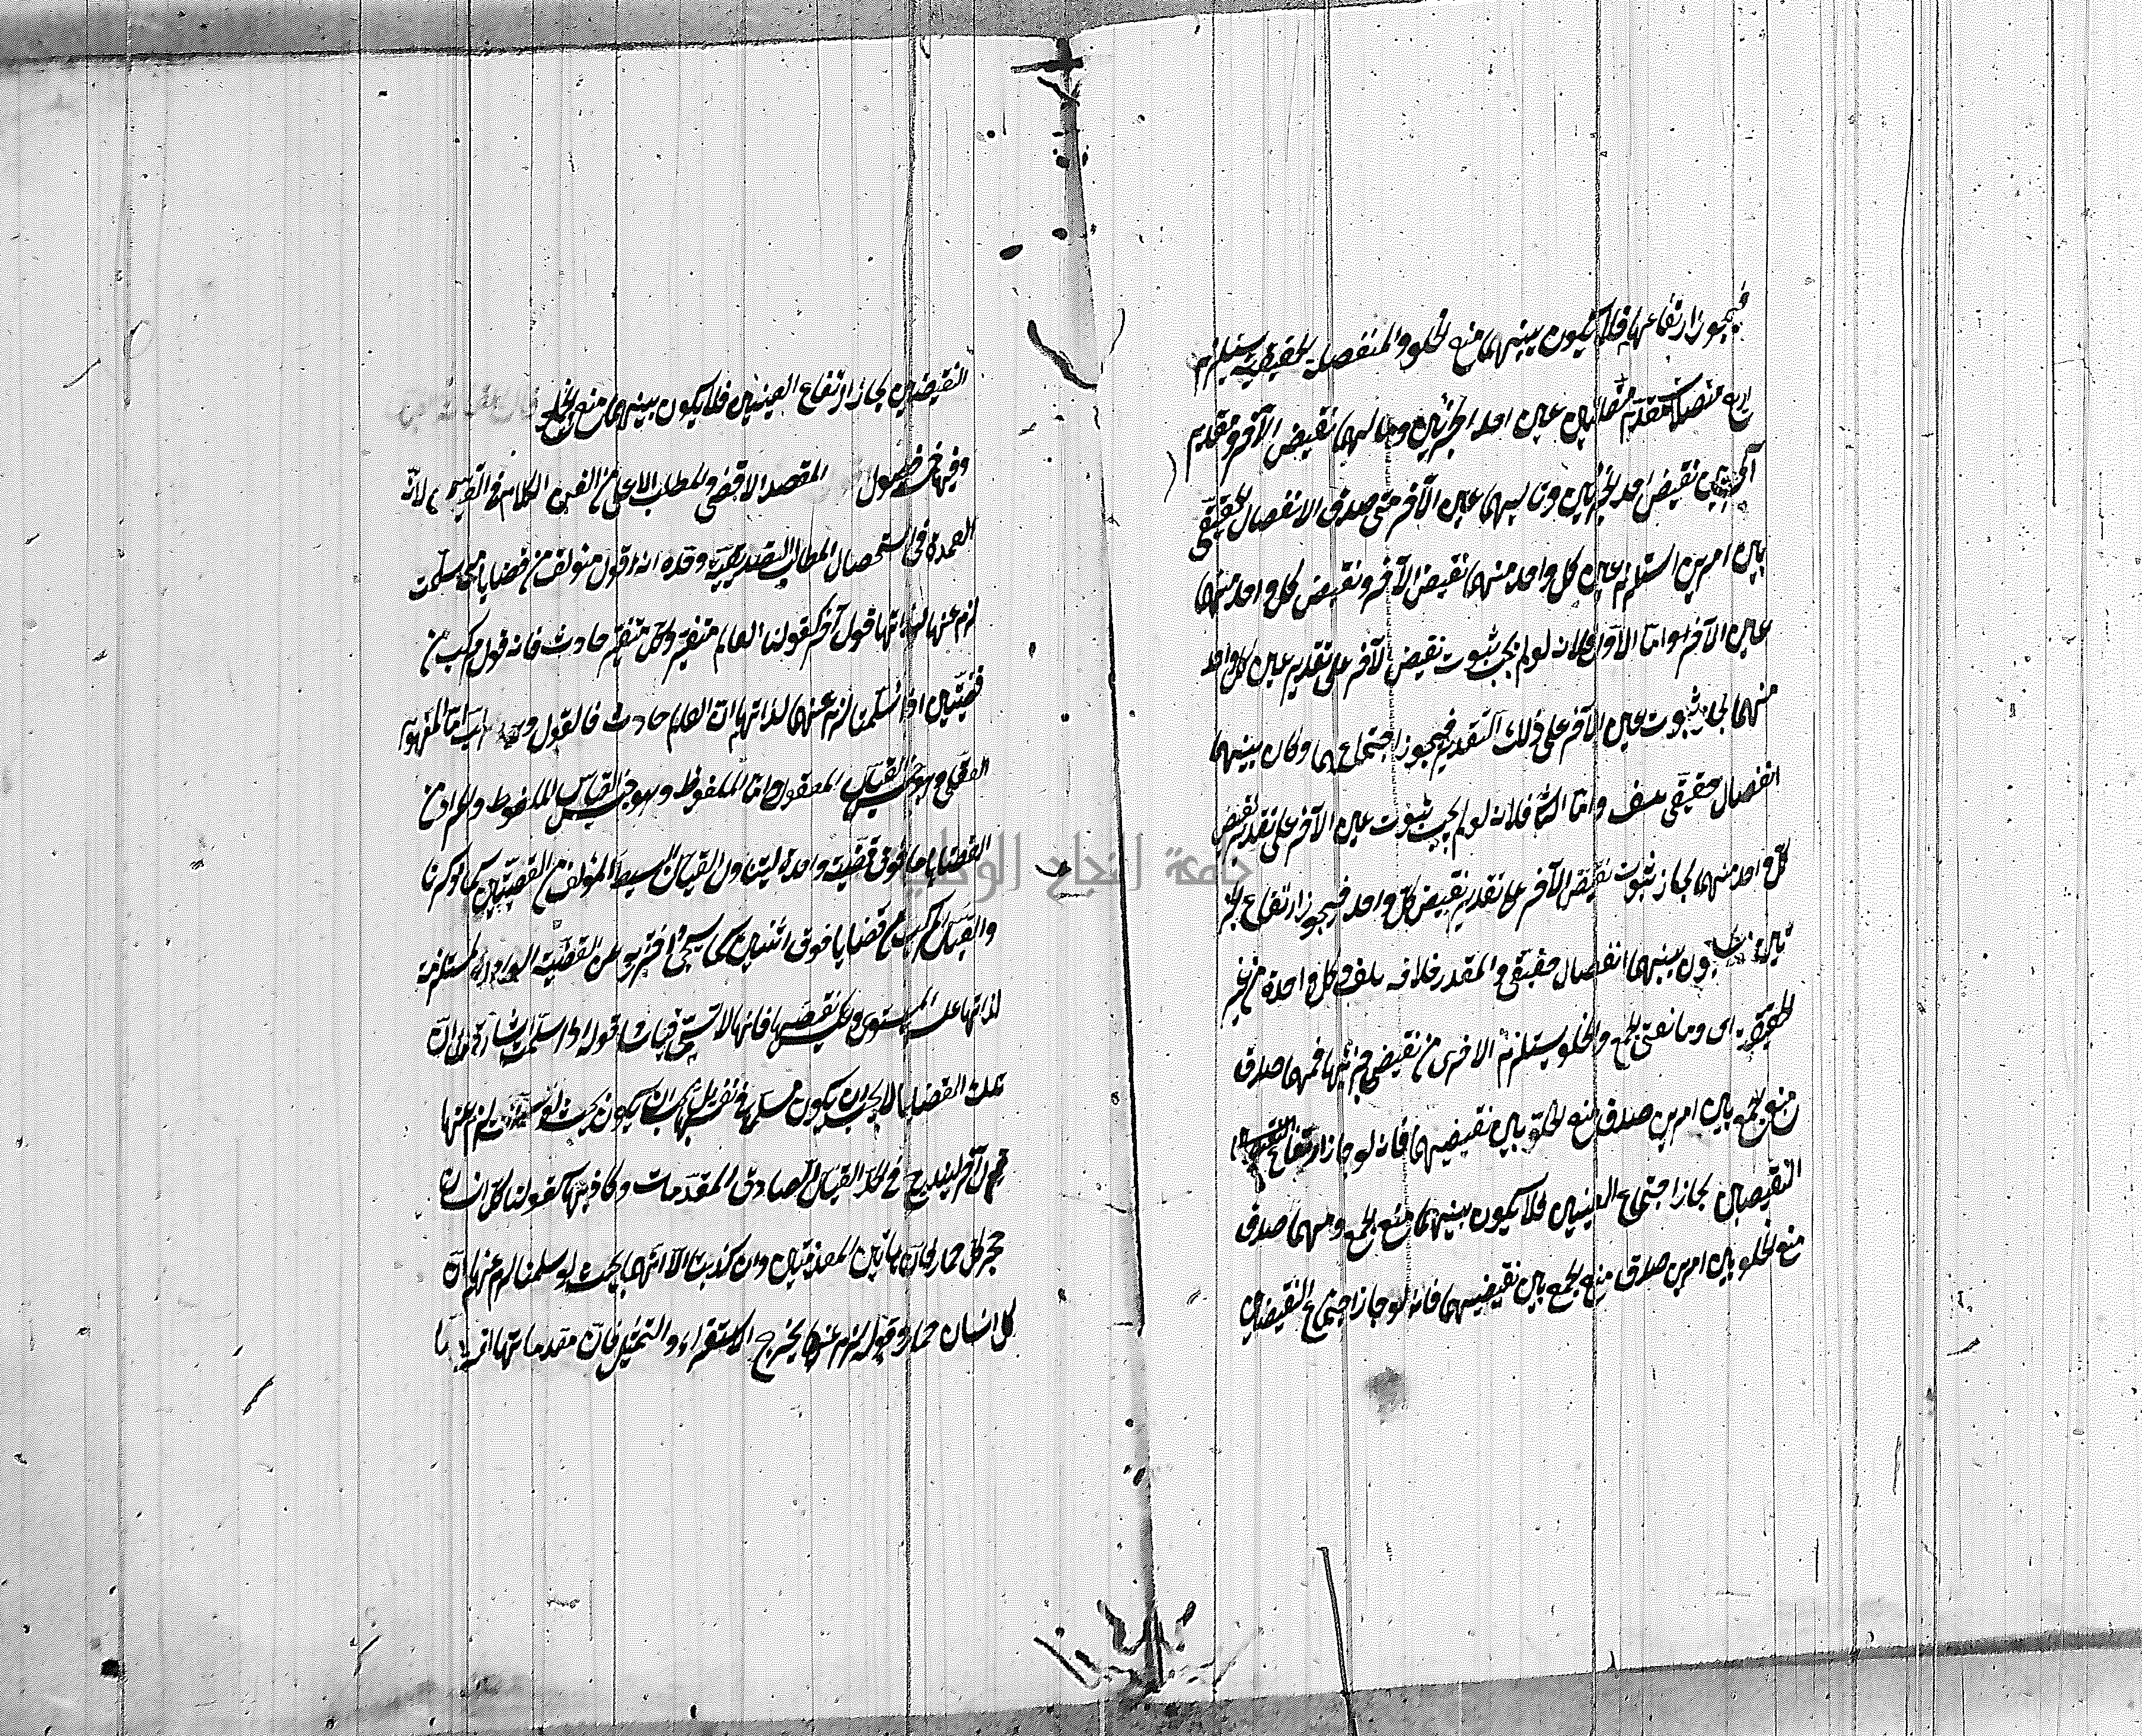 فيجوز ارتفاعهما فلا يكون بينهما منع الخلو والمنفصلة الحقيقية يستلزم
اربع متصلات مقدم متصلتين عين احد الجزئين وتاليهما نقيض الآخر ومقدم
آخريين نقيض احد الجزئين وتاليهما عين الآخر متى صدق الانفصال الحقيقى
بين امرين استلزم عين كل واحد منهما نقيض الآخر ونقيض كل واحد منهما
عين الآخر اما الاول فلانه لو لم يجب ثبوت نقيض الآخر على تقدير عين كل واحد
منهما لجاز ثبوت عين الآخر على ذلك التقدير فيجوز اجتماعهما وكان بينهما
انفصال حقيقى هف واما الثانى فلانه لو لم يجب ثبوت عين الآخر على تقدير نقيض
كل واحد منهما لجاز ثبوت نقيض الآخر على تقدير نقيض كل واحد فيجوز ارتفاع الجز
ئين فلا يكون بينهما انفصال حقيقى والمقدر خلافه هف وكل واحدة من غير
الحقيقية اى ومانعتى الجمع والخلو يستلزم الاخرى من نقيضى جزئيها فمهما صدق
منع الجمع بين امرين صدق منع الخلو بين نقيضيهما فانه لو جاز ارتفاع
النقيضين لجاز اجتماع العينين فلا يكون بينهما منع الجمع ومهما صدق
منع الخلو بين امرين صدق منع الجمع بين نقيضيهما فانه لو جاز اجتماع النقيضين
النقيضين لجاز ارتفاع العينين فلا يكون بينهما منع الخلو
وفيها خمسة فصول المقصد الاقصى والمطلب الاعلى من الفن الكلام فى القياس لانه
العمدة فى استحصال المطالب التصديقية وحده انه قول مؤلف من قضايا متى سلمت
لزم عنها لذاتها قول آخر كقولنا العالم متغير وكل متغير حادث فانه قول مركب من
قضيتين اذا سلمتا لزم عنهما لذاتهما ان العالم حادث فالقول وهو المركب اما المفهوم
العقلى وهو جنس القياس المعقول واما الملفوظ وهو جنس القياس الملفوظ والمراد من
القضايا ما فوق قضية واحدة ليتناول القياس البسيط المؤلف من القضيتين كما ذكرنا
والقياس المركب من قضايا فوق اثنتين كما سيجئ واحترز به عن القضية الواحدة المستلزمة
لذاتها عكس المستوى وعكس نقيضها فانها لا تسمى قياسا وقوله اذا سلمت اشارة الى ان
تلك القضايا لا يجب ان يكون مسلمة فى نفسها بل يجب ان يكون بحيث لو سلمت لزم عنها
قول آخر ليندرج فى الحد القياس الصادق المقدمات وكاذبها كقولنا كل انسان
حجر وكل حجر حمار فان هاتين المقدمتين وان كذبتا الا انهما بحيث لو سلمتا لزم عنهما ان
كل انسان حمار وقوله لزم عنها يخرج الاستقراء والتمثيل فان مقدماتها اذا
جامعة النجاح الوطنية